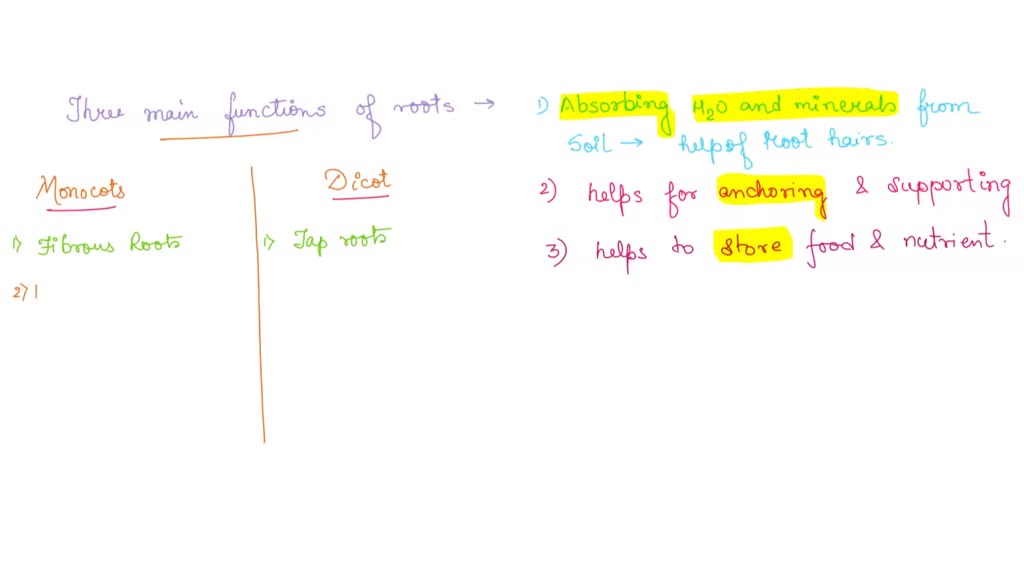 Three main functions of roots →
1) Absorbing H₂O and minerals from
Soil → help of Root hairs.
2) helps for anchoring & supporting
3) helps to store food & nutrient.
Monocots
1) Fibrous Roots
2) |
Dicot
1) Tap roots